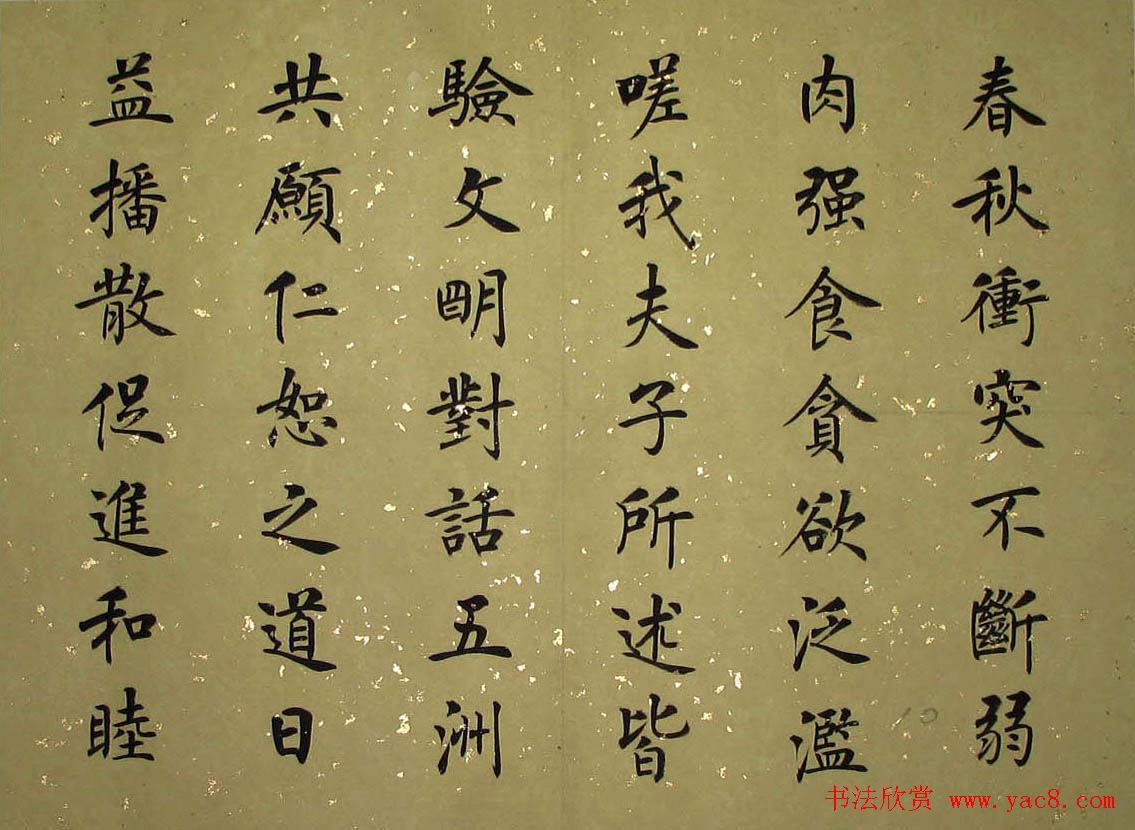 春秋衝突不斷弱
肉强食食貪欲泛濫
嗟我夫子所述皆
驗文明對話五洲
共願仁恕之道日
益播散促進和睦
书法欣赏 www.yac8.com